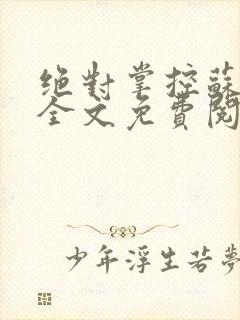 絕對掌控蘇
全文免費閱
少年浮生若夢